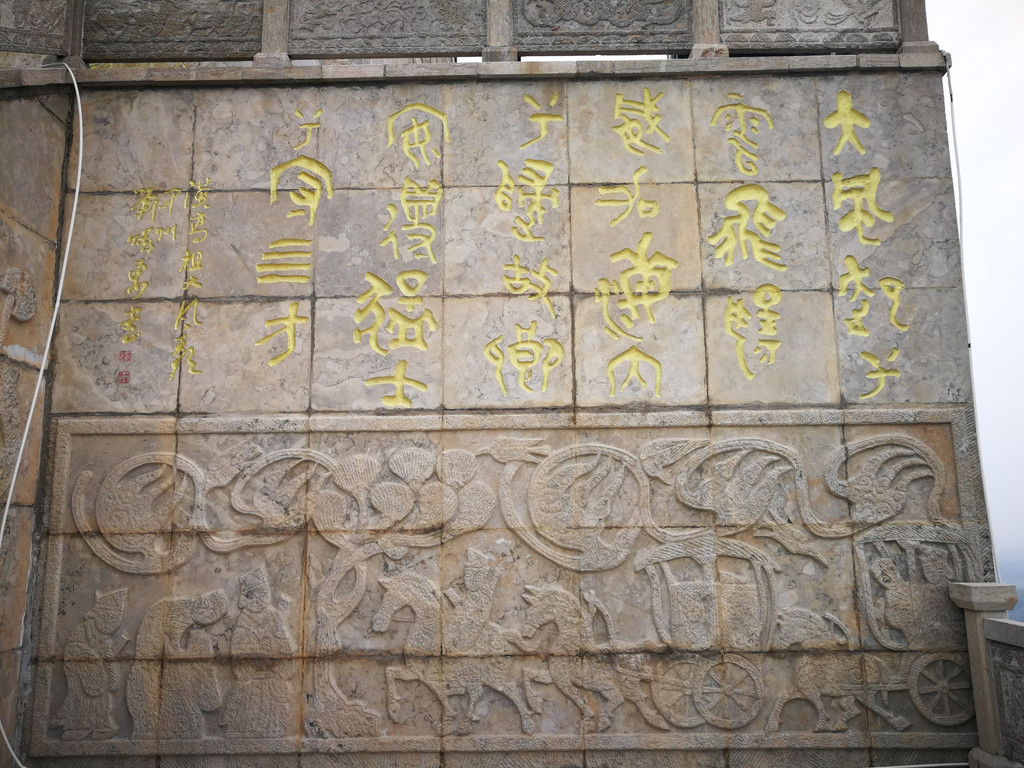 大風起兮
雲飛揚
威加海内
兮歸故鄉
安得猛士
兮守亖方
漢高祖大風歌
州
書